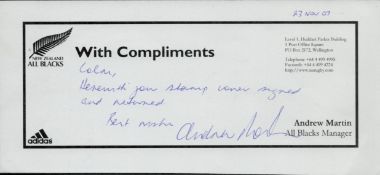 23 NOV 07
NEW ZEALAND
ALL BLACKS
With Compliments
Level 1, Huddart Parker Building
1 Post Office Square
PO Box 2172, Wellington
Telephone +64 4 499 4995
Facsimile +64 4 499 4224
http://www.nzrugby.com
Colin,
Herewith your stamp cover signed
and returned
Best wishes
Andrew Martin
Andrew Martin
All Blacks Manager
adidas